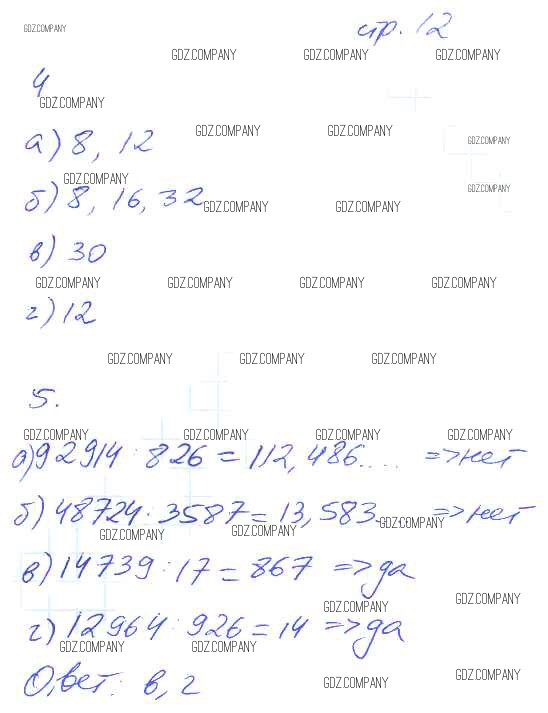 GDZ.COMPANY стр. 12
GDZ.COMPANY GDZ.COMPANY GDZ.COMPANY
4
GDZ.COMPANY
а) 8, 12 GDZ.COMPANY GDZ.COMPANY GDZ.COMPANY
GDZ.COMPANY
б) 8, 16, 32 GDZ.COMPANY GDZ.COMPANY GDZ.COMPANY
в) 30
GDZ.COMPANY GDZ.COMPANY GDZ.COMPANY GDZ.COMPANY
г) 12
GDZ.COMPANY GDZ.COMPANY GDZ.COMPANY
5.
GDZ.COMPANY GDZ.COMPANY GDZ.COMPANY GDZ.COMPANY
а) 92914 : 826 = 112,486.... => нет
б) 48724 : 3587 = 13,583... => нет
GDZ.COMPANY GDZ.COMPANY GDZ.COMPANY
в) 14739 : 17 = 867 => да
GDZ.COMPANY GDZ.COMPANY
г) 12964 : 926 = 14 => да
GDZ.COMPANY GDZ.COMPANY
Ответ: в, г
GDZ.COMPANY GDZ.COMPANY